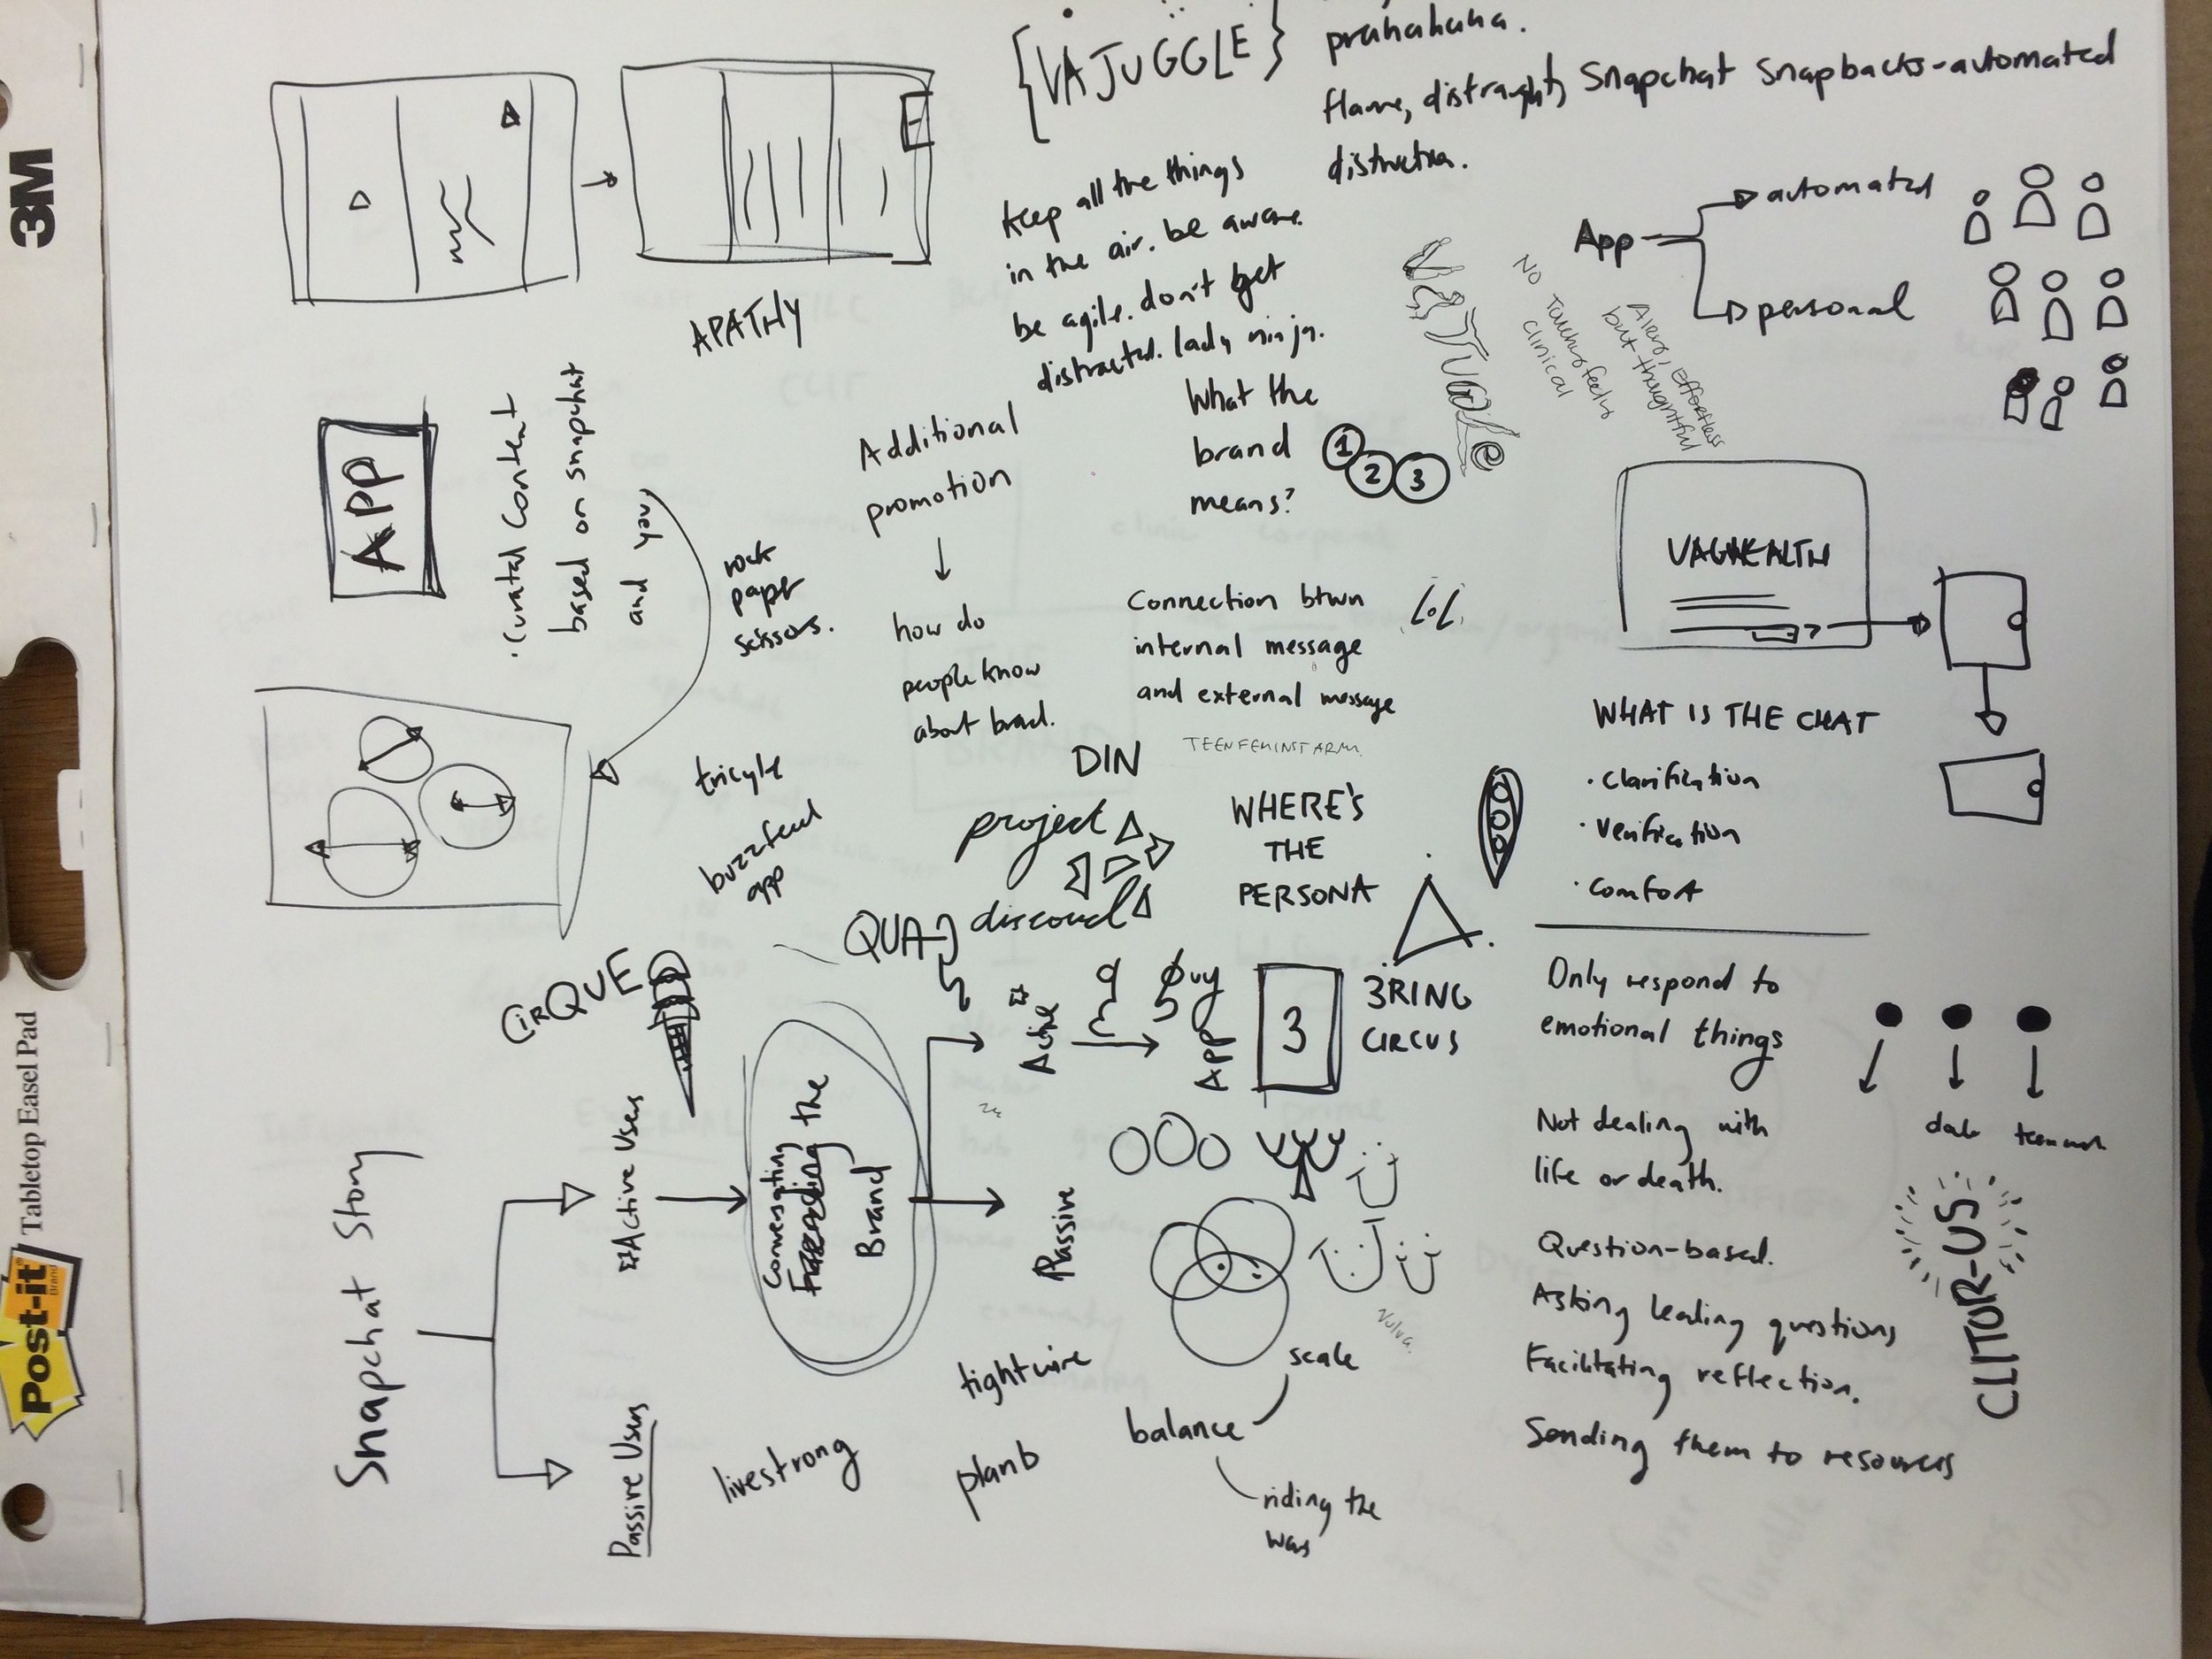 3M
Post-it
Brand
Tabletop Easel Pad
{VAJUGGLE}
prahahaha.
flame, distraught, Snapchat Snapbacks-automated
Keep all the things
in the air. be aware.
be agile. don't get
distracted. lady ninja.
App
automated
personal
No
clinical
but thoughtful
APATHY
APP
· Curated Content
based on snapchat
and you
rock
paper
scissors.
Additional
promotion
how do
people know
about brand.
What the
brand
means?
1
2
3
Connection btwn
internal message
and external message
VAGHEALTH
WHAT IS THE CHAT
· Clarification
· Verification
· Comfort
tricyle
buzzfeed
app
DIN
project
discard
WHERE'S
THE
PERSONA
QUA
CIRQUE
Snapchat Story
Active Users
Passive Users
Conversating
the
Brand
Active
guy
App
3
3RING
CIRCUS
Passive
Vulva.
tightwire
scale
balance
riding the
livestrong
planb
Only respond to
emotional things
Not dealing with
life or death.
Question-based.
Asking leading questions
Facilitating reflection.
Sending them to resources
CLITOR-US